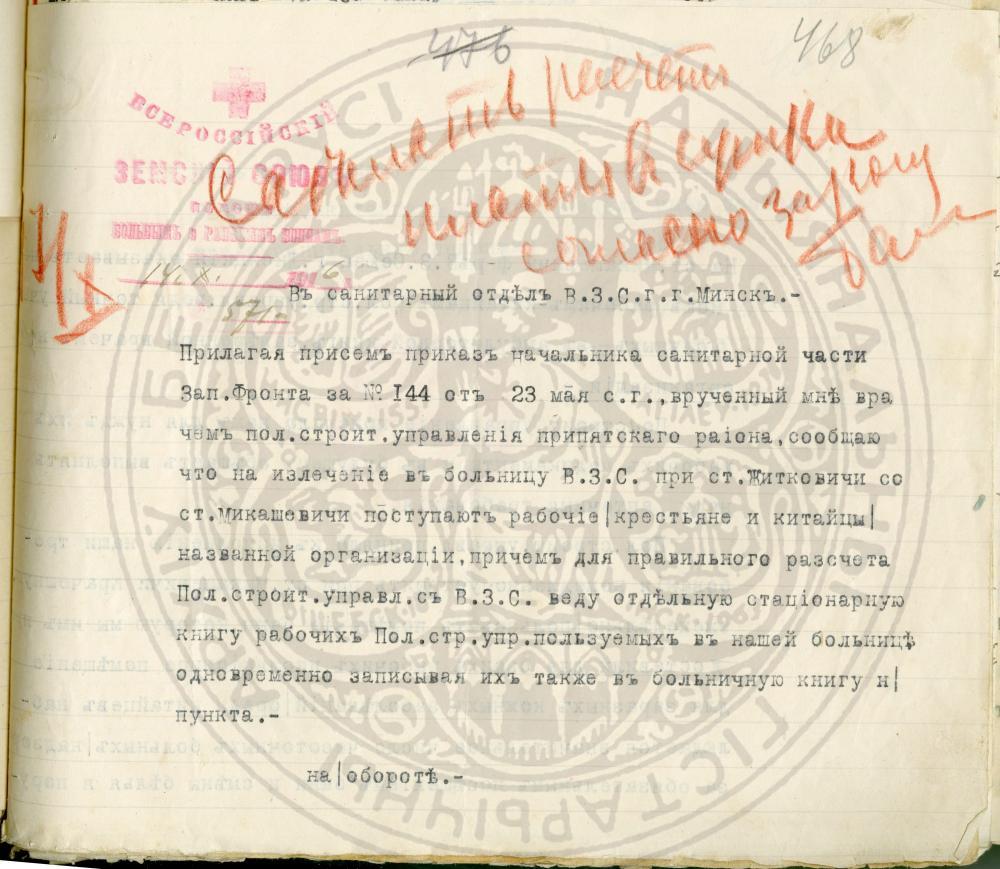 476
468
ВСЕРОССІЙСКІЙ
ЗЕМСКІЙ СОЮЗЪ
БОЛЬНЫМЪ и РАНЕНЫМЪ ВОИНАМЪ.
согласно закону
14. X. 1916
571
Въ санитарный отдѣлъ В.З.С.г.г.Минскъ.-
Прилагая присемъ приказъ начальника санитарной части
Зап.Фронта за № I44 отъ 23 мая с.г.,врученный мнѣ вра
чемъ пол.строит.управленія припятскаго раіона,сообщаю
что на излеченіе въ больницу В.З.С. при ст.Житковичи со
ст.Микашевичи поступаютъ рабочіе|крестьяне и китайцы|
названной организаціи,причемъ для правильного разсчета
Пол.строит.управл.съ В.З.С. веду отдѣльную стаціонарную
книгу рабочихъ Пол.стр.упр.пользуемыхъ въ нашей больницѣ
одновременно записывая ихъ также въ больничную книгу н|
пункта.-
на|оборотѣ.-